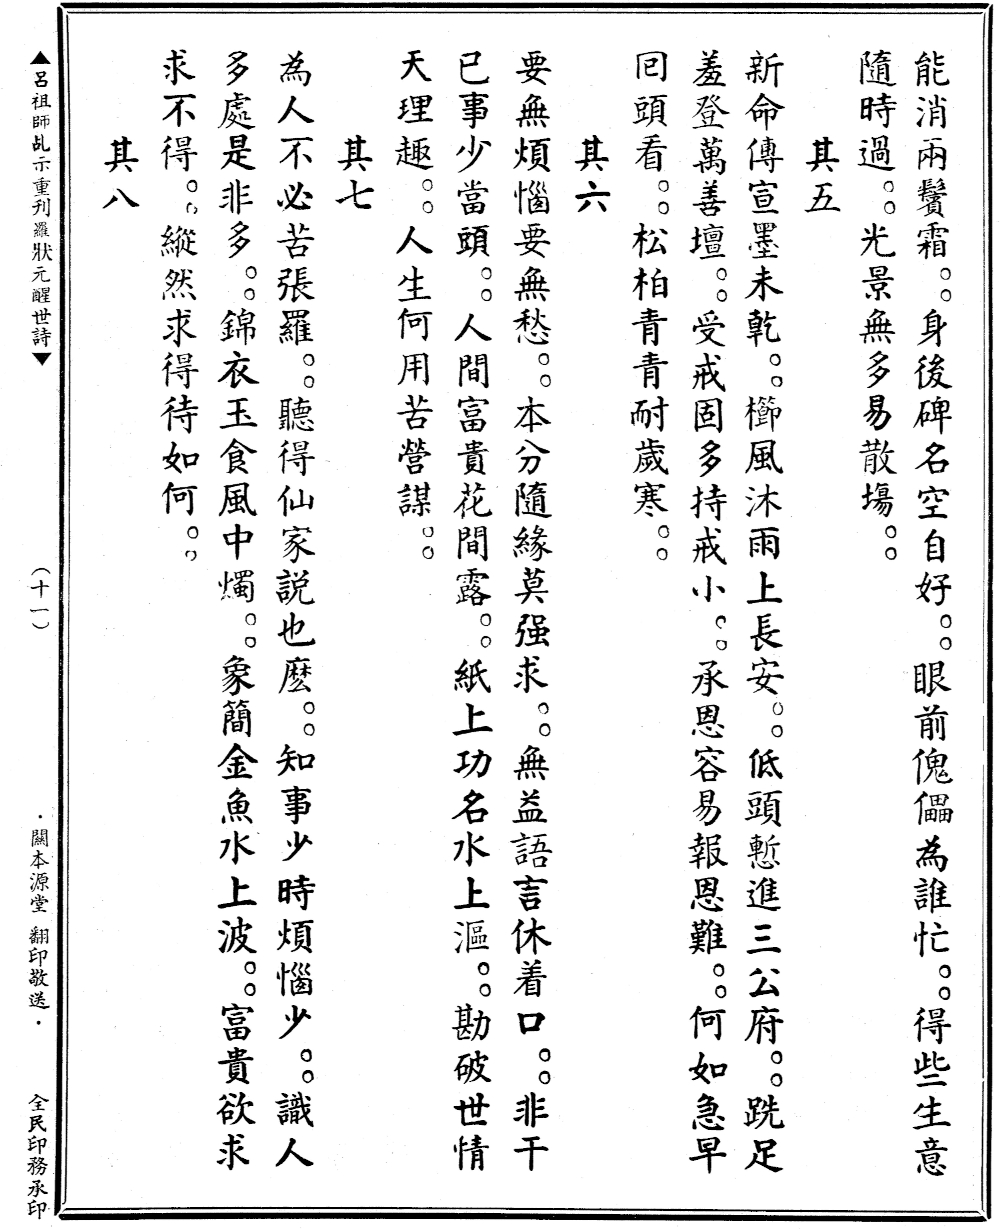 能消兩鬢霜。。身後碑名空自好。。眼前傀儡為誰忙。。得些生意
隨時過。。光景無多易散場。。
其五
新命傳宣墨未乾。。櫛風沐雨上長安。。低頭慙進三公府。。跣足
羞登萬善壇。。受戒固多持戒小。。承恩容易報恩難。。何如急早
囘頭看。。松柏青青耐歲寒。。
其六
要無煩惱要無愁。。本分隨緣莫强求。。無益語言休着口。。非干
已事少當頭。。人間富貴花間露。。紙上功名水上漚。。勘破世情
天理趣。。人生何用苦營謀。。
其七
為人不必苦張羅。。聽得仙家説也麽。。知事少時煩惱少。。識人
多處是非多。。錦衣玉食風中燭。。象簡金魚水上波。。富貴欲求
求不得。。縱然求得待如何。。
其八
▲呂祖師乩示重刋羅狀元醒世詩▼
（十一）
·關本源堂 翻印敬送·
全民印務承印